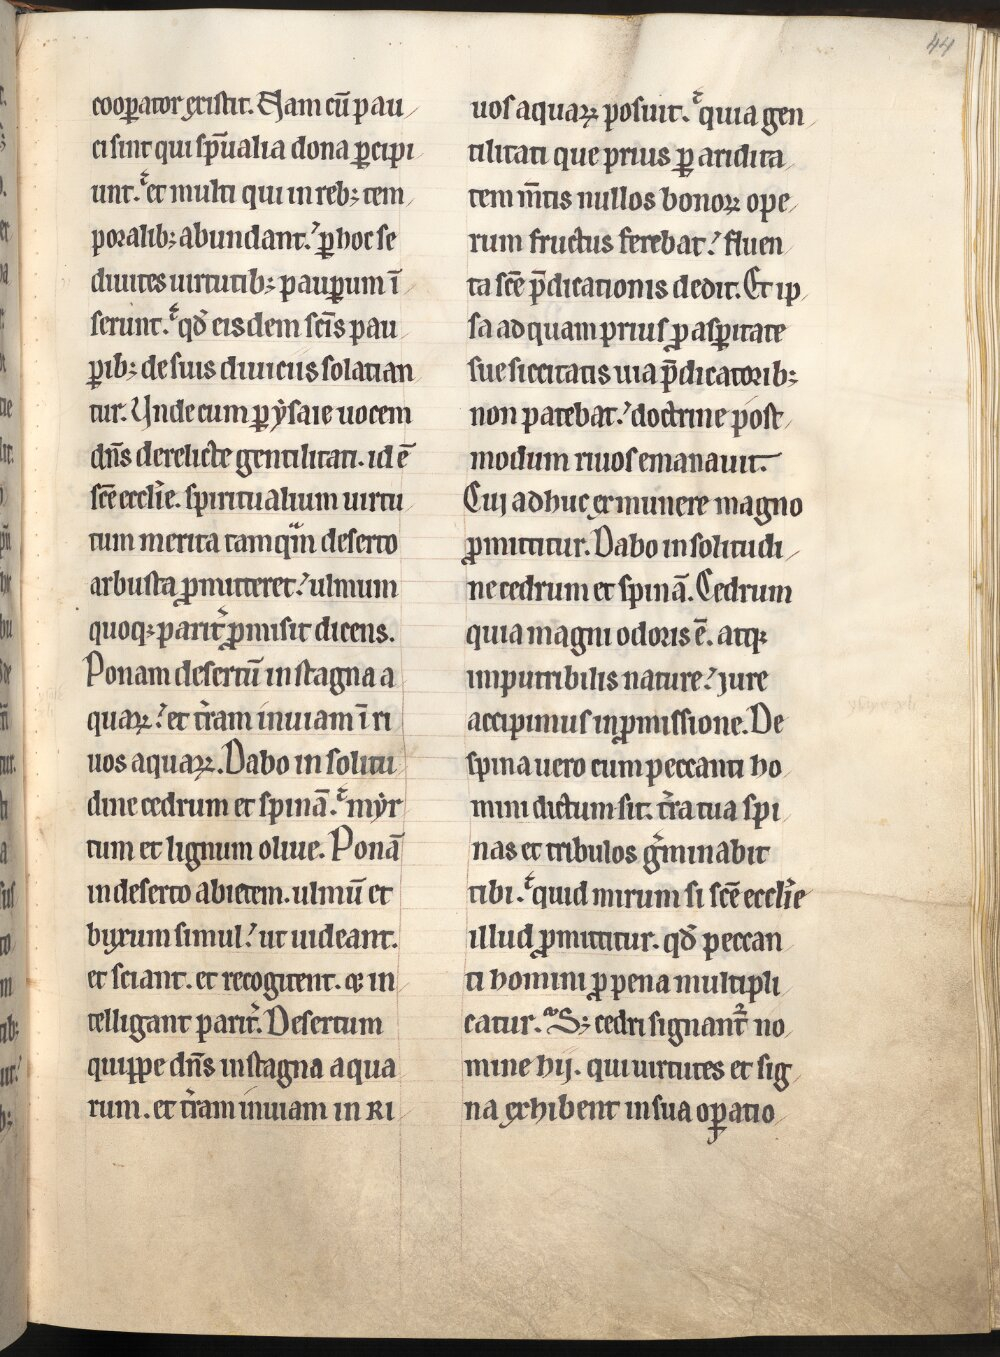 44
coop̲ator existit. Nam cū pau
ci sint qui sp̄ualia dona p̲cipi
unt. et multi qui in reb; tem
poralib; abundant. p̲ hoc se
diuites uirtutib; paup̲um ī
serunt. qđ eisdem scīs pau
p̲ib; de suis diuiciis solatian
tur. Unde cum p̲ ẏsaie uocem
dn̄s derelicte gentilitati. id ē
scē ecclīe. spiritualium uirtu
tum merita tamqͣm deserto
arbusta ꝓmitteret. ulmum
quoq; parit̉ ꝓmisit dicens.
Ponam desertū in stagna a
quaꝝ. et t̉ram inuiam ī ri
uos aquaꝝ. Dabo in solitu
dine cedrum et spinā. myr
tum et lignum oliue. Ponā
in deserto abietem. ulmū et
byxum simul. ut uideant.
et sciant. et recogitent. & in
telligant parit̉. Desertum
quippe dn̄s in stagna aqua
rum. et t̉ram inuiam in RI
uos aquaꝝ posuit. quia gen
tilitati que prius p̲ aridita
tem m̄tis nullos bonoꝝ ope
rum fructus ferebat. fluen
ta scē p̄dicationis dedit. Et ip
sa ad quam prius ꝓ asp̲itate
sue siccitatis uia p̄dicatorib;
non patebat. doctrine post
modum riuos emanauit.
Cui adhuc ex munere magno
ꝓmittitur. Dabo in solitudi
ne cedrum et spinā. Cedrum
quia magni odoris ē. atq;
imputribilis nature. iure
accipimus in ꝓmissione. De
spina uero cum peccanti ho
mini dictum sit. t̉ra tua spi
nas et tribulos g̉minabit
tibi. quid mirum si scē ecclīe
illud ꝓmittitur. qđ peccan
ti homini ꝓ pena multipli
catur. S; cedri signant᷑ no
mine hij. qui uirtutes et sig
na exhibent in sua op̲atio